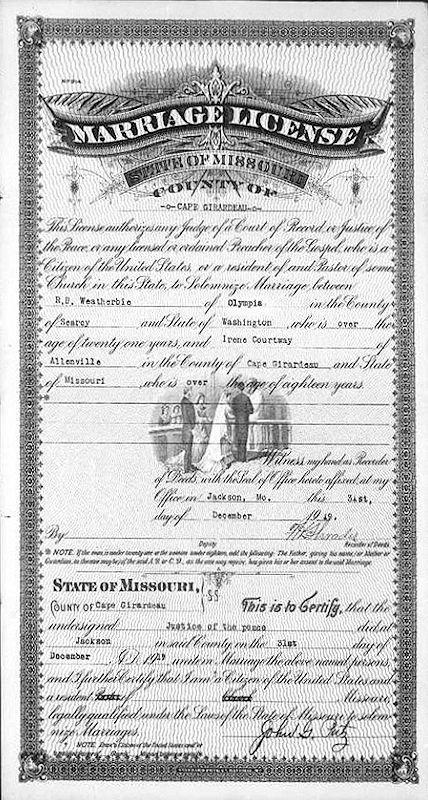 MARRIAGE LICENSE
STATE OF MISSOURI
COUNTY OF
-o- CAPE GIRARDEAU -o-
This License authorizes any Judge of a Court of Record or Justice of
the Peace, or any licensed or ordained Preacher of the Gospel, who is a
Citizen of the United States, or a resident of and Pastor of some
Church in this State, to Solemnize Marriage between
R.B. Weatherbie of Olympia in the County
of Searcy and State of Washington, who is over the
age of twenty one years, and Irene Courtway of
Allenville in the County of Cape Girardeau and State
of Missouri, who is over the age of eighteen years.
Witness my hand as Recorder
of Deeds, with the Seal of Office hereto affixed, at my
Office in Jackson, Mo. this 31st,
day of December 1949.
By
Deputy Recorder of Deeds
NOTE. If the man is under twenty-one or the woman under eighteen, add the following: The Father, giving his name, (or Mother or
Guardian, as the case may be,) of the said A. B. or C. D., as the case may require, has given his or her assent to the said Marriage.
STATE OF MISSOURI,
COUNTY OF Cape Girardeau SS This is to Certify, that the
undersigned Justice of the peace did, at
Jackson in said County, on the 31st day of
December A.D. 1949 unite in Marriage the above named persons,
and I further Certify that I am a Citizen of the United States and
a resident of Missouri,
legally qualified under the Laws of the State of Missouri to solem-
nize Marriages. John G.
NOTE.